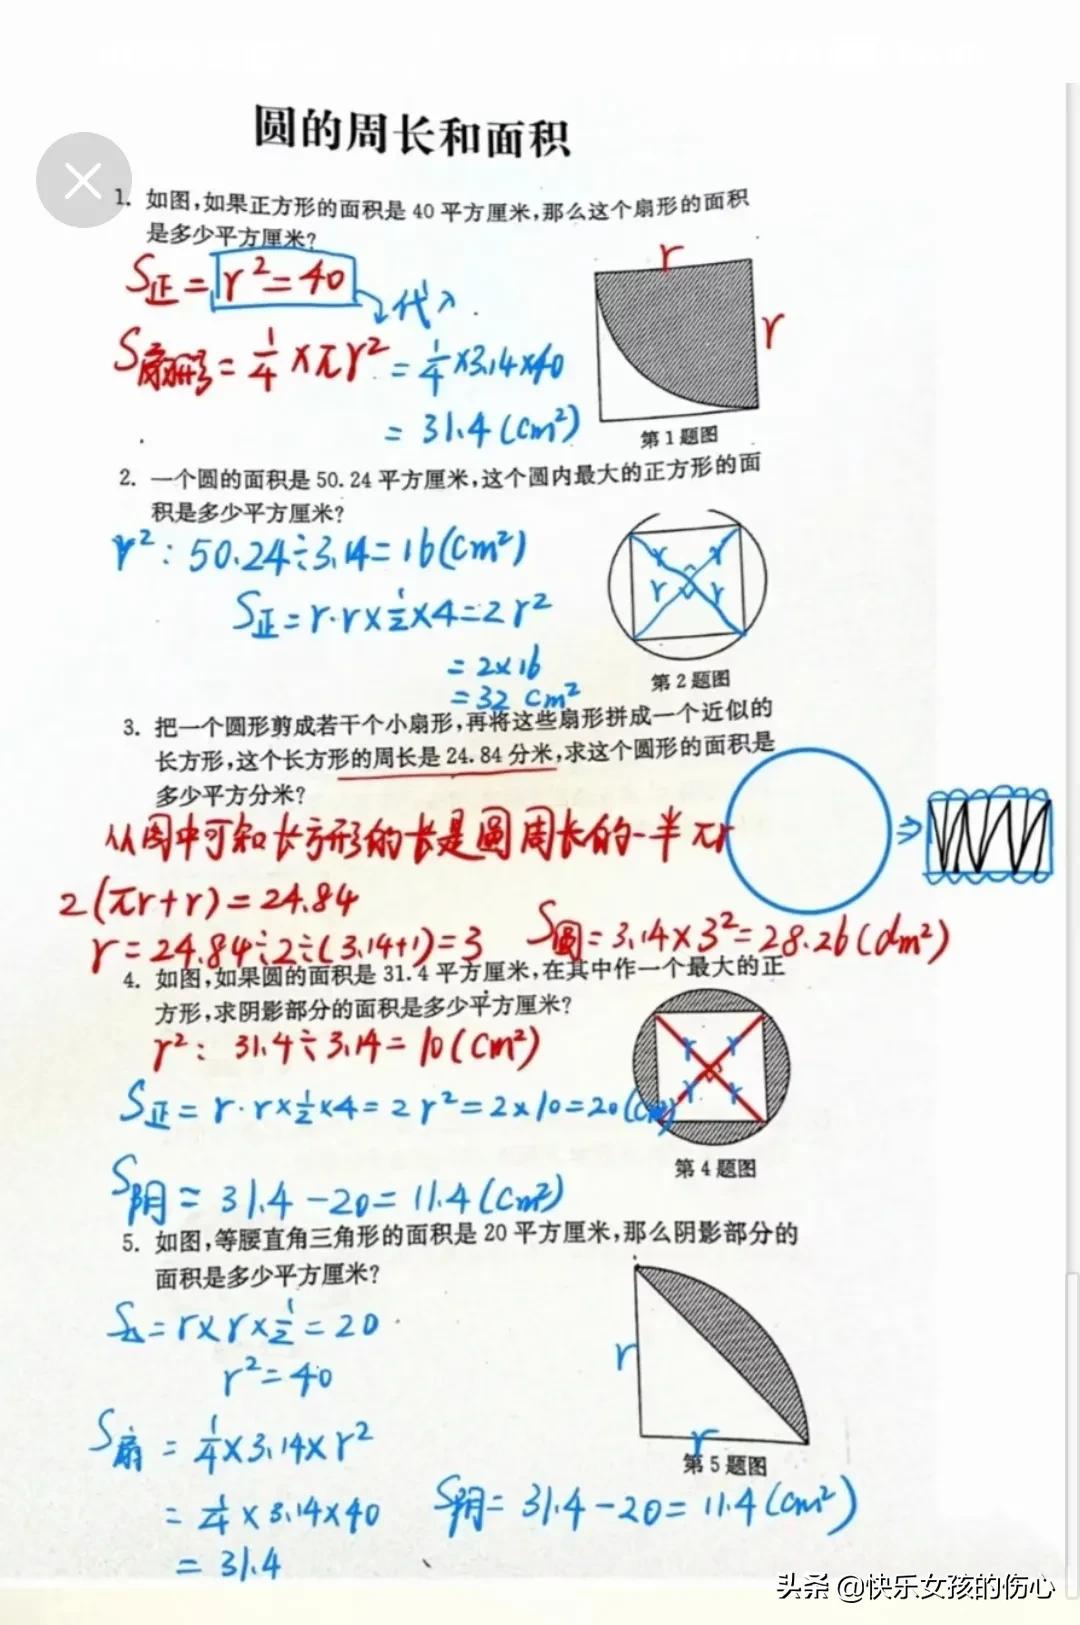 圆的周长和面积
1. 如图,如果正方形的面积是 40 平方厘米,那么这个扇形的面积
是多少平方厘米?
S正=r²=40
代入
S扇形=1/4×πr²=1/4×3.14×40
=31.4(cm²)
r
r
第 1 题图
2. 一个圆的面积是 50.24 平方厘米,这个圆内最大的正方形的面
积是多少平方厘米?
r²: 50.24÷3.14=16(cm²)
S正=r·r×1/2×4=2r²
=2×16
=32 cm²
r r
r r
第 2 题图
3. 把一个圆形剪成若干个小扇形,再将这些扇形拼成一个近似的
长方形,这个长方形的周长是 24.84 分米,求这个圆形的面积是
多少平方分米?
从图中可知长方形的长是圆周长的一半 πr
2(πr+r)=24.84
r=24.84÷2÷(3.14+1)=3 S圆=3.14×3²=28.26(dm²)
4. 如图,如果圆的面积是 31.4 平方厘米,在其中作一个最大的正
方形,求阴影部分的面积是多少平方厘米?
r²: 31.4÷3.14=10(cm²)
S正=r·r×1/2×4=2r²=2×10=20(cm²)
r r
r r
第 4 题图
S阴=31.4-20=11.4(cm²)
5. 如图,等腰直角三角形的面积是 20 平方厘米,那么阴影部分的
面积是多少平方厘米?
S△=r×r×1/2=20
r²=40
S扇=1/4×3.14×r²
=1/4×3.14×40
=31.4
r
r
第 5 题图
S阴=31.4-20=11.4(cm²)
头条 @快乐女孩的伤心